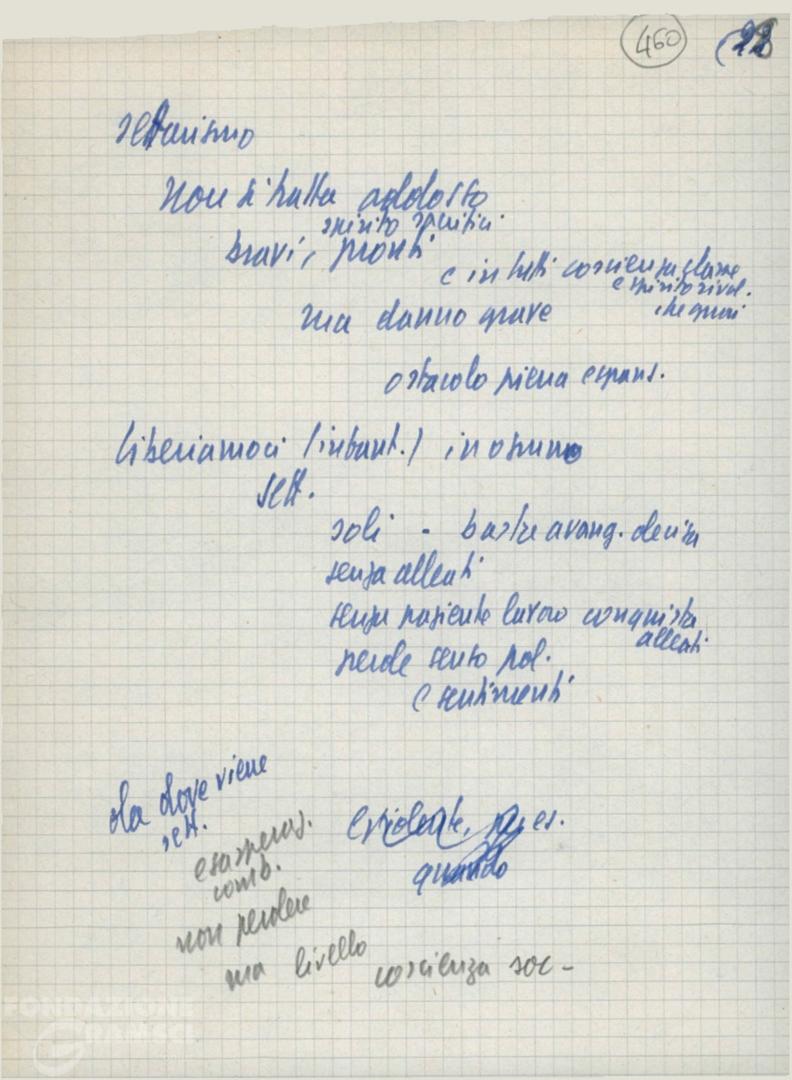 460
settarismo
non si tratta addosso
spirito sacrificio
bravi, pronti
e in tutti coscienza classe
e spirito rivol.
che guai
ma danno grave
ostacolo piena espans.
liberiamoci (intant.) in
sett.
soli - basta avang. decisa
senza alleati
senza paziente lavoro conquista
alleati
perde senso pol.
e sentimenti
da dove viene
sett.
esasperaz.
comb.
non perdere
ma livello coscienza soc -
evidente, p. es.
quando
FONDAZIONE
GRAMSCI